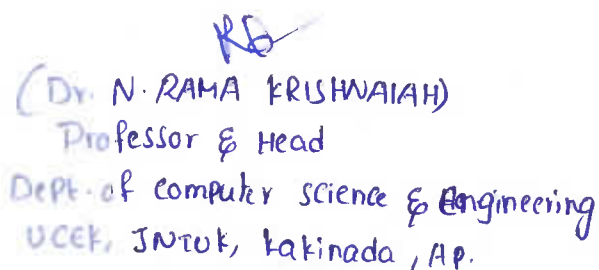 (Dr. N. RAMA KRISHNAIAH)
Professor & Head
Dept. of computer science & Engineering
UCEK, JNTUK, kakinada, AP.